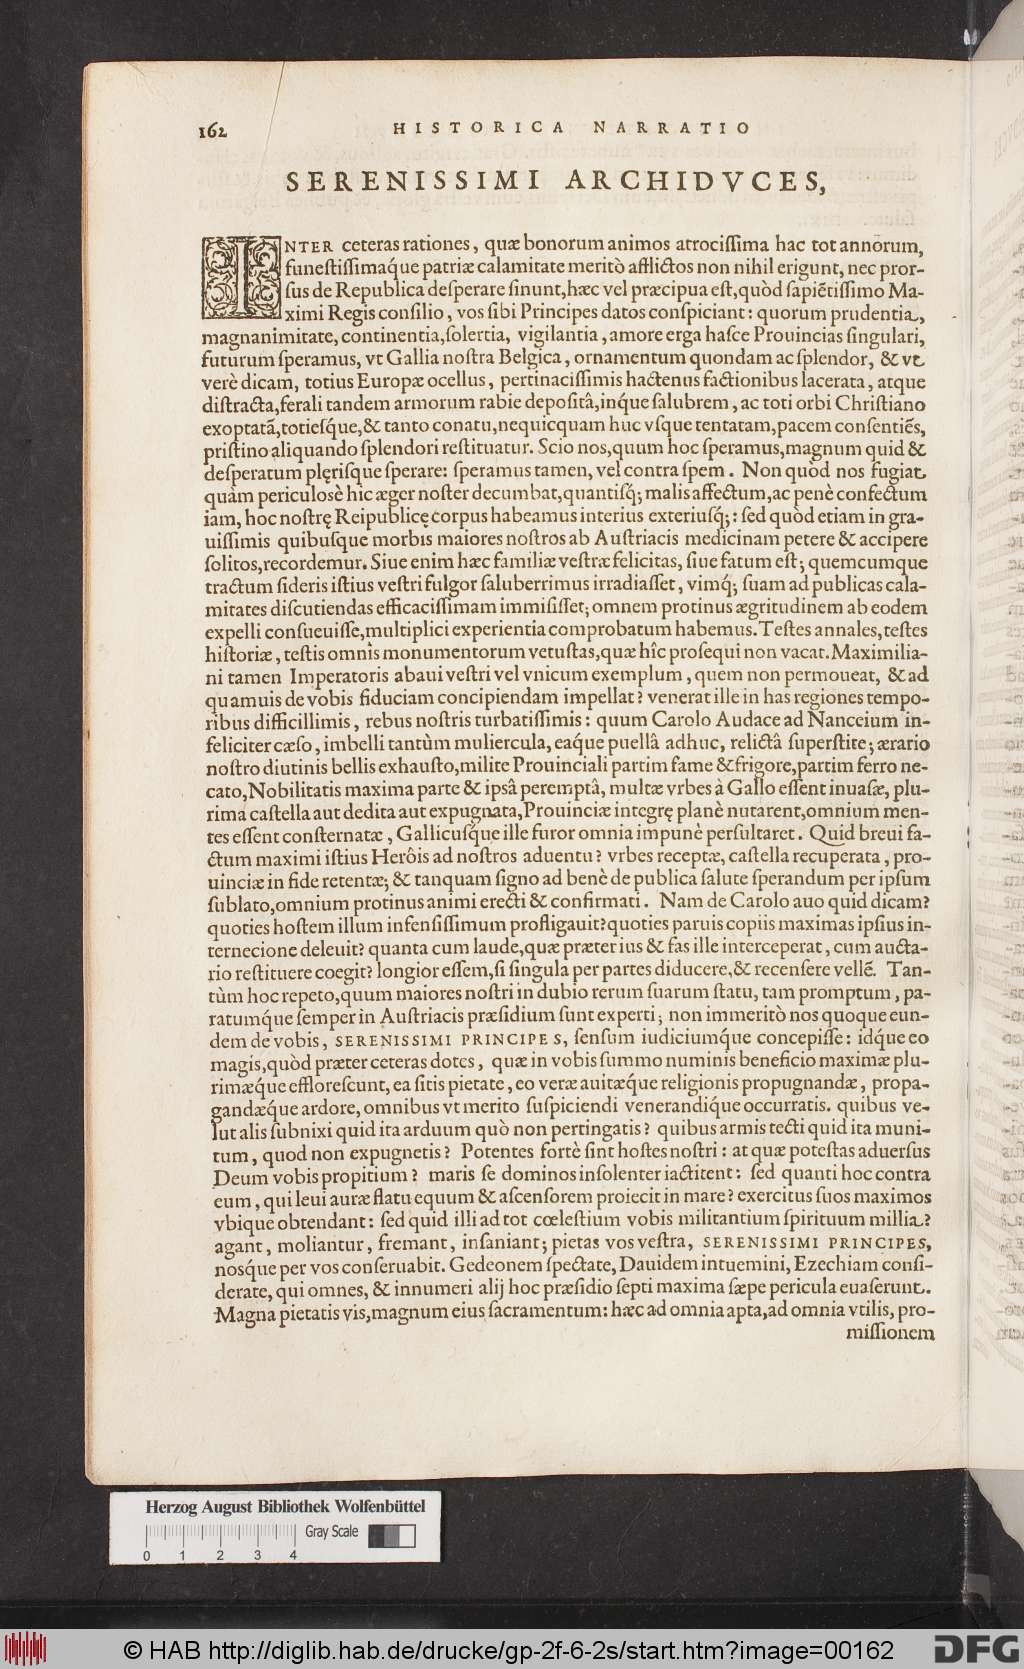 162 HISTORICA NARRATIO
SERENISSIMI ARCHIDVCES,
INTER ceteras rationes, quæ bonorum animos atrocißima hac tot annorum,
funeſtiſſimaq́ue patriæ calamitate meritò afflictos non nihil erigunt, nec pror-
ſus de Republica deſperare ſinunt, hæc vel præcipua eſt, quòd ſapiẽtiſſimo Ma-
ximi Regis conſilio, vos ſibi Principes datos conſpiciant: quorum prudentia,
magnanimitate, continentia, ſolertia, vigilantia, amore erga haſce Prouincias ſingulari,
futurum ſperamus, vt Gallia noſtra Belgica, ornamentum quondam ac ſplendor, & vt
verè dicam, totius Europæ ocellus, pertinaciſſimis hactenus factionibus lacerata, atque
diſtracta, ferali tandem armorum rabie depoſitâ, inq́ue ſalubrem, ac toti orbi Chriſtiano
exoptatã, totieſq́ue, & tanto conatu, nequicquam huc vſque tentatam, pacem conſentiẽs,
priſtino aliquando ſplendori reſtituatur. Scio nos, quum hoc ſperamus, magnum quid &
deſperatum plęriſque ſperare: ſperamus tamen, vel contra ſpem. Non quòd nos fugiat
quàm periculosè hic æger noſter decumbat, quantiſq́; malis affectum, ac penè confectum
iam, hoc noſtrę Reipublicę corpus habeamus interius exteriuſq́;: ſed quòd etiam in gra-
uiſſimis quibuſque morbis maiores noſtros ab Auſtriacis medicinam petere & accipere
ſolitos, recordemur. Siue enim hæc familiæ veſtræ felicitas, ſiue fatum eſt; quemcumque
tractum ſideris iſtius veſtri fulgor ſaluberrimus irradiaſſet, vimq́; ſuam ad publicas cala-
mitates diſcutiendas efficaciſſimam immiſiſſet; omnem protinus ægritudinem ab eodem
expelli conſueuiſſe, multiplici experientia comprobatum habemus. Teſtes annales, teſtes
hiſtoriæ, teſtis omnis monumentorum vetuſtas, quæ hîc proſequi non vacat. Maximilia-
ni tamen Imperatoris abaui veſtri vel vnicum exemplum, quem non permoueat, & ad
quamuis de vobis fiduciam concipiendam impellat? venerat ille in has regiones tempo-
ribus difficillimis, rebus noſtris turbatiſſimis: quum Carolo Audace ad Nanceium in-
feliciter cæſo, imbelli tantùm muliercula, eaq́ue puellâ adhuc, relictâ ſuperſtite; ærario
noſtro diutinis bellis exhauſto, milite Prouinciali partim fame & frigore, partim ferro ne-
cato, Nobilitatis maxima parte & ipsâ peremptâ, multæ vrbes à Gallo eſſent inuaſæ, plu-
rima caſtella aut dedita aut expugnata, Prouinciæ integrę planè nutarent, omnium men-
tes eſſent conſternatæ, Gallicuſq́ue ille furor omnia impunè perſultaret. Quid breui fa-
ctum maximi iſtius Herôis ad noſtros aduentu? vrbes receptæ, caſtella recuperata, pro-
uinciæ in fide retentæ; & tanquam ſigno ad benè de publica ſalute ſperandum per ipſum
ſublato, omnium protinus animi erecti & confirmati. Nam de Carolo auo quid dicam?
quoties hoſtem illum infenſiſſimum profligauit? quoties paruis copiis maximas ipſius in-
ternecione deleuit? quanta cum laude, quæ præter ius & fas ille interceperat, cum aucta-
rio reſtituere coegit? longior eſſem, ſi ſingula per partes diducere, & recenſere vellẽ. Tan-
tùm hoc repeto, quum maiores noſtri in dubio rerum ſuarum ſtatu, tam promptum, pa-
ratumq́ue ſemper in Auſtriacis præſidium ſunt experti; non immeritò nos quoque eun-
dem de vobis, SERENISSIMI PRINCIPES, ſenſum iudiciumq́ue concepiſſe: idq́ue eo
magis, quòd præter ceteras dotes, quæ in vobis ſummo numinis beneficio maximæ plu-
rimæq́ue effloreſcunt, ea ſitis pietate, eo veræ auitæq́ue religionis propugnandæ, propa-
gandæq́ue ardore, omnibus vt merito ſuſpiciendi venerandiq́ue occurratis. quibus ve-
lut alis ſubnixi quid ita arduum quò non pertingatis? quibus armis tecti quid ita muni-
tum, quod non expugnetis? Potentes fortè ſint hoſtes noſtri: at quæ poteſtas aduerſus
Deum vobis propitium? maris ſe dominos inſolenter iactitent: ſed quanti hoc contra
eum, qui leui auræ flatu equum & aſcenſorem proiecit in mare? exercitus ſuos maximos
vbique obtendant: ſed quid illi ad tot cœleſtium vobis militantium ſpirituum millia?
agant, moliantur, fremant, inſaniant; pietas vos veſtra, SERENISSIMI PRINCIPES,
noſq́ue per vos conſeruabit. Gedeonem ſpectate, Dauidem intuemini, Ezechiam conſi-
derate, qui omnes, & innumeri alij hoc præſidio ſepti maxima ſæpe pericula euaſerunt.
Magna pietatis vis, magnum eius ſacramentum: hæc ad omnia apta, ad omnia vtilis, pro-
miſſionem
Herzog August Bibliothek Wolfenbüttel
Gray Scale
0 1 2 3 4
© HAB http://diglib.hab.de/drucke/gp-2f-6-2s/start.htm?image=00162
DFG